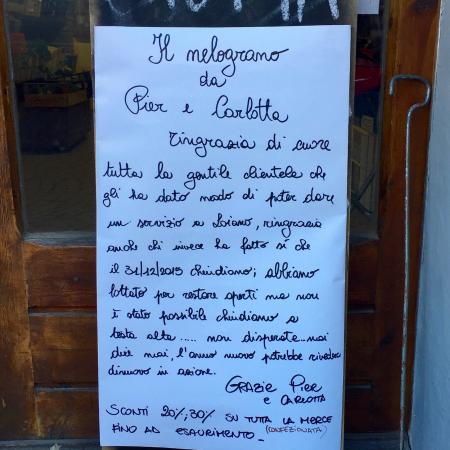 Il melograno
da
Pier e Carlotta
ringrazia di cuore
tutta la gentile clientela che
gli ha dato modo di poter dare
un servizio a Loiano, ringrazia
anche chi invece ha fatto sì che
il 31/12/2015 chiudiamo; abbiamo
lottato per restare aperti ma non
è stato possibile chiudiamo a
testa alta ..... non disperate... mai
dire mai, l'anno nuovo potrebbe rivederci
di nuovo in azione.
GRAZIE PIER
e CARLOTTA
SCONTI 20%, 30% SU TUTTA LA MERCE
FINO AD ESAURIMENTO_ (CONFEZIONATA)